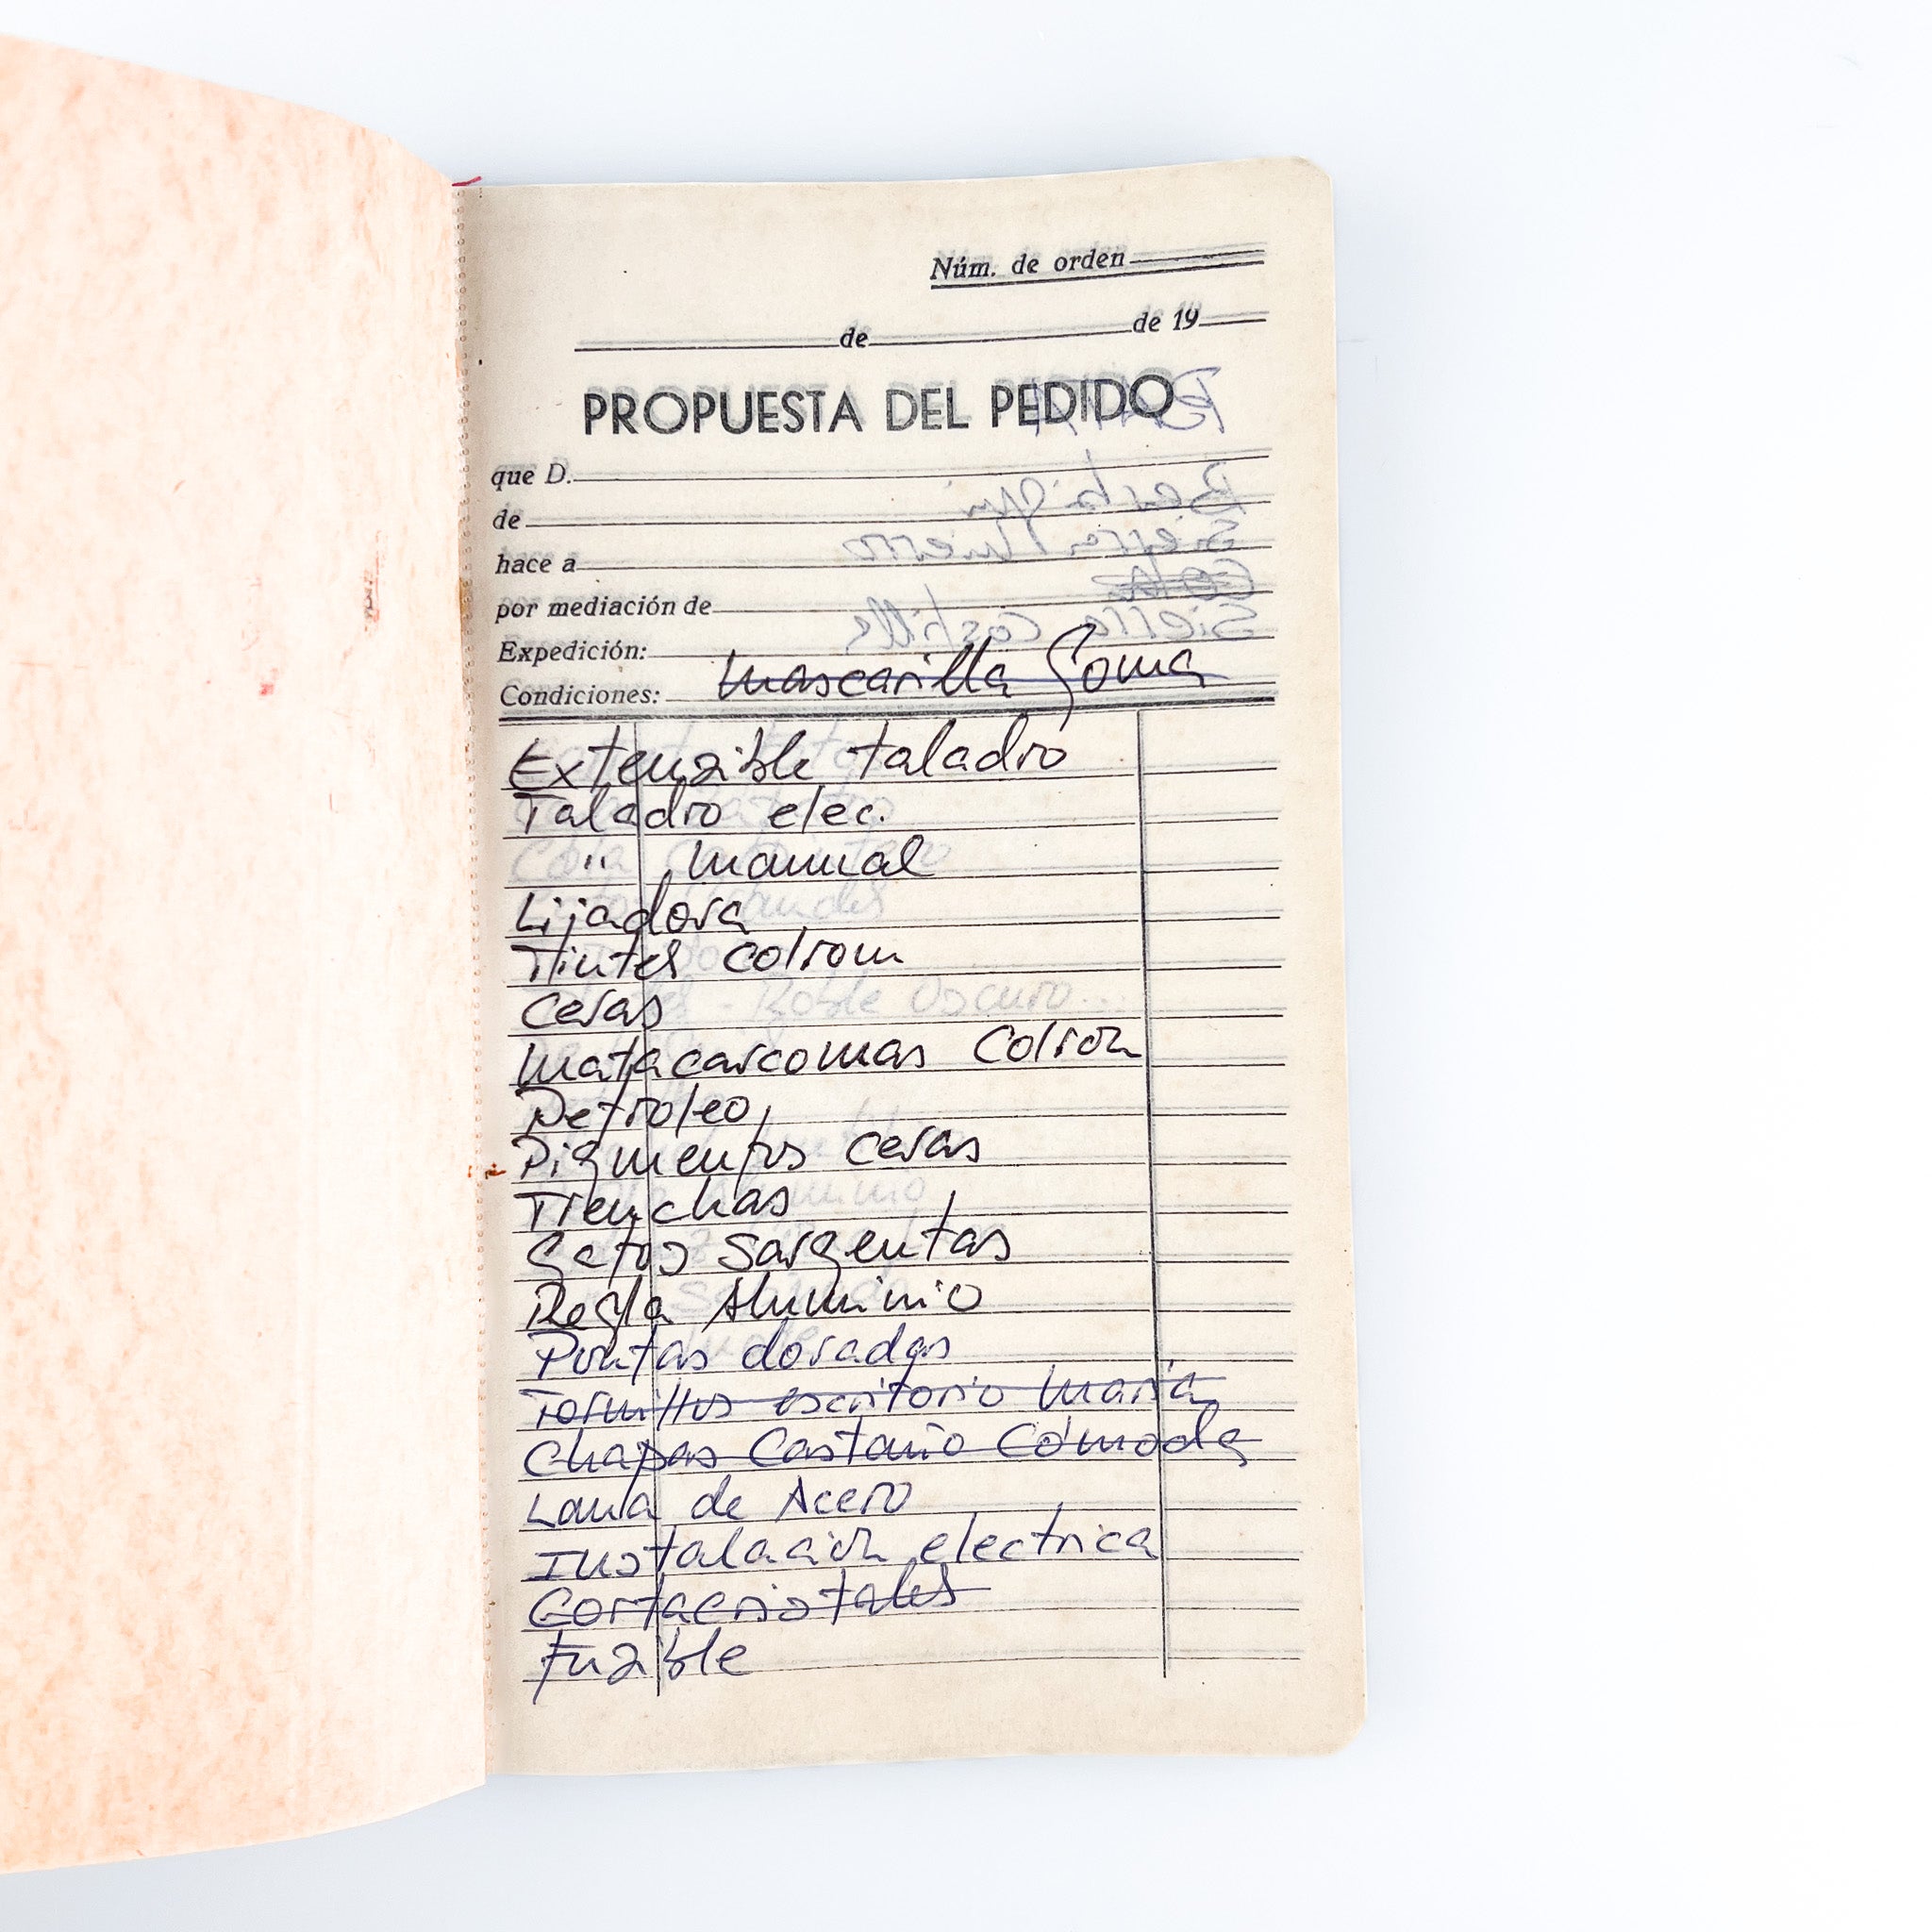 Núm. de orden
de de 19
PROPUESTA DEL PEDIDO
que D.
de
hace a
por mediación de
Expedición:
Condiciones: Mascarilla Goma
Extensible taladro
Taladro elec.
" manual
Lijadora
Tintes colron
Ceras
Matacarcomas Colron
Petroleo
Pigmentos ceras
Trenchas
Gatos Sargentas
Regla Aluminio
Puntas doradas
Tornillos escritorio María
Chapas Castaño Cómoda
Lana de Acero
Instalación electrica
Cortacristales
Fusible